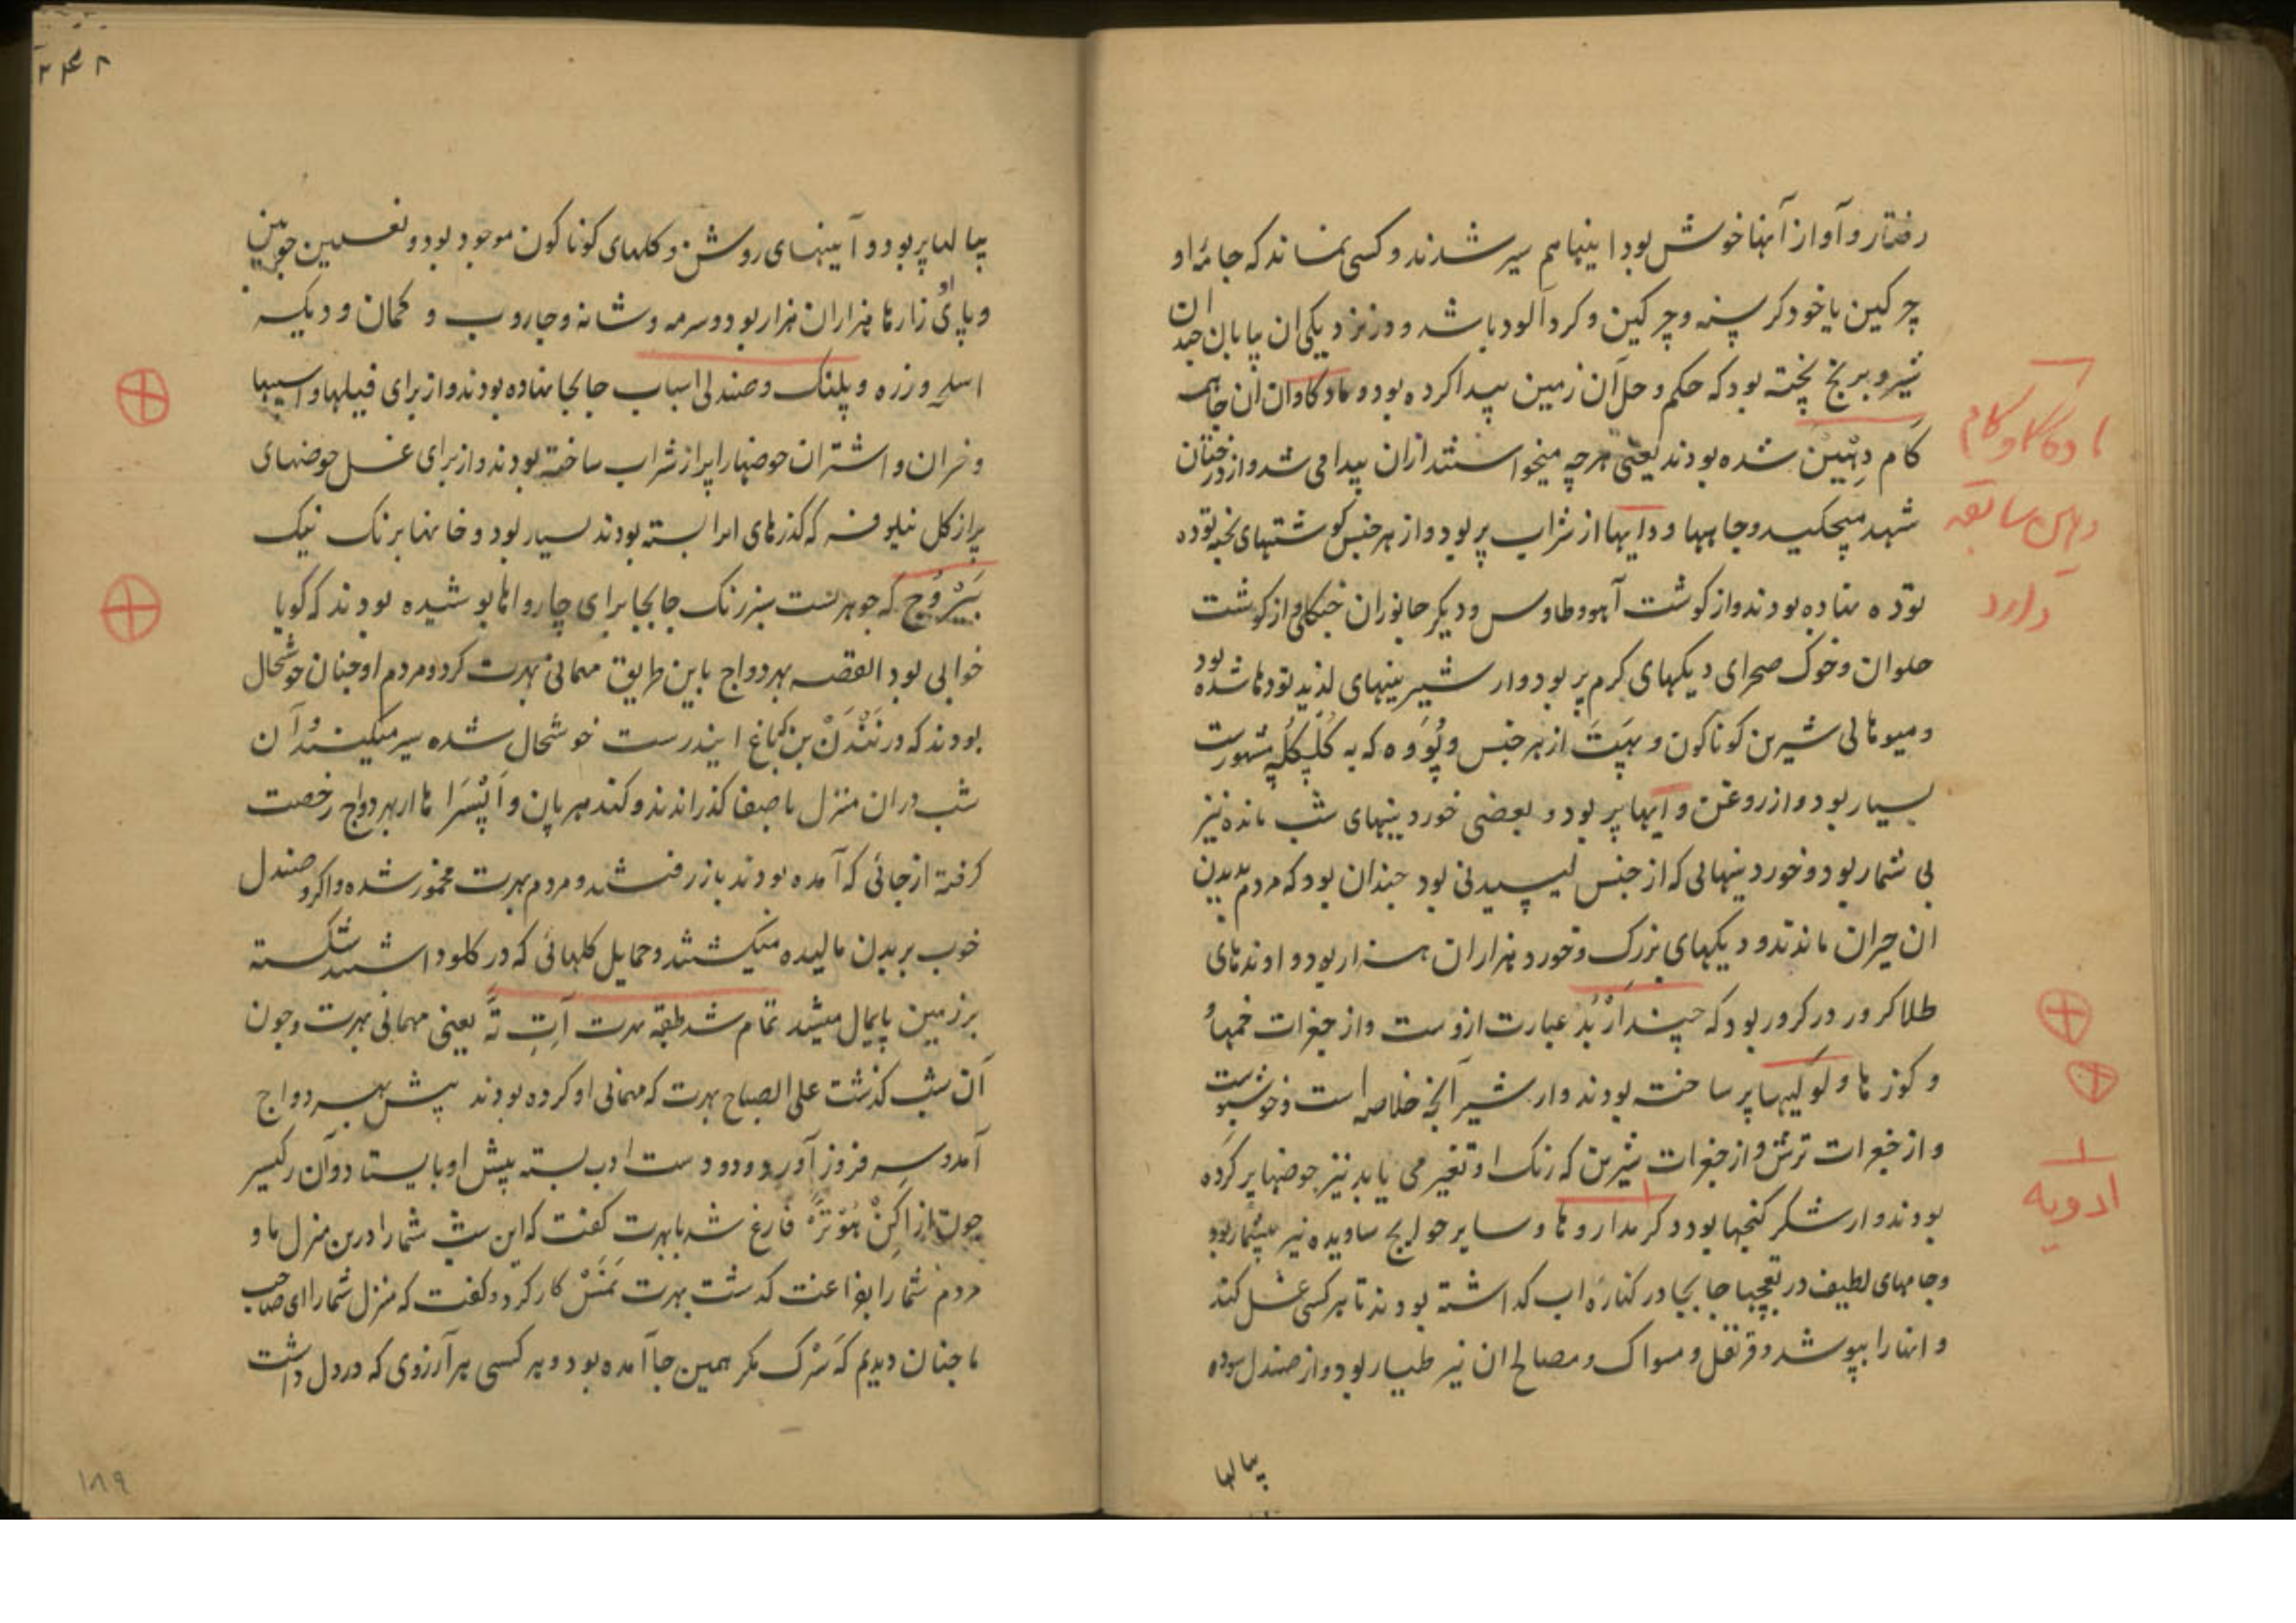 رفتار و آواز آنها خوش بود اینها هم سیر شدند و کسی نماند که جامهٔ او
چرکین یا خود کرسنه و چرکین و کرد آلود باشد و در نزدیکی ان بیابان چندان
شیر و برنج پخته بود که حکم وحل آن زمین پیدا کرده بود و ماده کاوان آن جا همه
کام دهین شده بودند یعنی هرچه میخواستند ازان پیدا می شد و از درختان
شهد میچکید و چاهها و دایها از شراب پر بود و از هر جنس کوشتهای پخته توده
توده نهاده بودند و از کوشت آهو و طاوس و دیکر جانوران جنکلی و از کوشت
حلوان و خوک صحرای دیکهای کرم پر بود و از شیرینیهای لذیذ تودها شده بود
و میوهائی شیرین کوناکون و بهپت از هر جنس و پووه که به کلکله مشهورست
بسیار بود و از روغن وایها پر بود و بعضی خوردینیهای شب مانده نیز
بی شمار بود و خوردینهائی که از جنس لیسیدنی بود چندان بود که مردم بدیدن
ان حیران ماندند و دیکهای بزرک و خورد هزاران هزار بود و اوندهای
طلا کرور در کرور بود که چند ارْبُد عبارت ازوست و از جغرات خمها
و کوزها و لولیها پر ساخته بودند و از شیر آنچه خلاصه است و خوشبوست
و از جغرات ترش و از جغرات شیرین که رنک او تغیر می یابد نیز حوضها پر کرده
بودند و از شکر کنجها بود و دکر مداروها و سایر حوایج ساویده نیز بیشمار بود
و جامهای لطیف در بقچها جابجا در کنارهٔ اب کذاشته بودند تا هر کسی غسل کند
و انها را بپوشد و قرنفل و مسواک و مصالح ان نیز طیار بود و از صندل سوده
پیالها
ماده کاو کام
دهین سابقه
دارد
ادویه
۲۴۸
پیالها پر بود و آیینهای روشن و کلهای کوناکون موجود بود و نعلین چوبین
و پای زارها هزاران هزار بود و سرمه و شانه و جاروب و کمان و دیکر
اسلحه و زره و پلنک و صندلی اسباب جابجا نهاده بودند و از برای فیلها و اسپها
و خران و اشتران حوضها را پر از شراب ساخته بودند و از برای غسل حوضهای
پر از کل نیلوفر که کذرهای انرا بسته بودند بسیار بود و خانها برنک نیک
بیروج که جوهریست سبز رنک جابجا برای چارواها پوشیده بودند که کویا
خوابی بود القصه بهردواج باین طریق مهمانی بهرت کرد و مردم او چنان خوشحال
بودند که در نندن بن که باغ ایندرست خوشحال شده سیر میکنند و آن
شب دران منزل با صفا کذراندند و کندهرپان و اپسرا ها از بهردواج رخصت
کرفته از جائی که آمده بودند باز رفتند و مردم بهرت مخمور شده و اکر و صندل
خوب بر بدن مالیده میکشتند و حمایل کلهائی که در کلو داشتند شکسته
بر زمین پایمال میشد تمام شد طبقه بهرت آتِ تَه یعنی مهمانی بهرت و چون
آن شب کذشت علی الصباح بهرت که مهمانی او کرده بودند پیش بهردواج
آمد و سر فروز آورد و دو دست ادب بسته پیش او بایستاد و آن رکیسر
چون از اکن هوتره فارغ شد با بهرت کفت که این شب شما را درین منزل ما و
مردم شما را بفراغت کذشت بهرت نمشکار کرد و کفت که منزل شما را ای صاحب
ما چنان دیدیم که سرک مکر همین جا آمده بود و هر کسی هر آرزوی که در دل داشت
۱۸۹